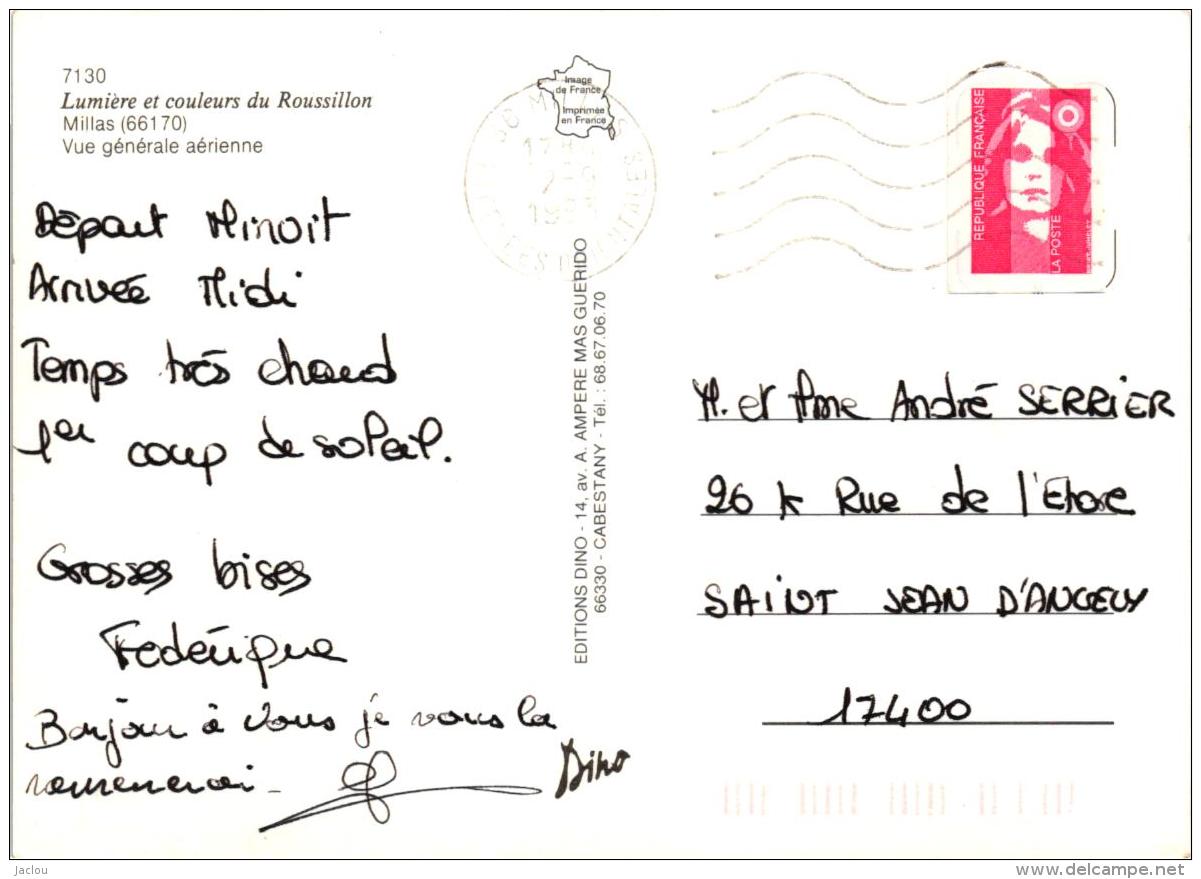 7130
Lumière et couleurs du Roussillon
Millas (66170)
Vue générale aérienne
Image
de France
Imprimée
en France
Départ Minuit
Arrivée Midi
Temps très chaud
1er coup de soleil.
Grosses bises
Féderique
Bonjour à vous je vous la
ramenerai -
Dino
EDITIONS DINO - 14, av. A. AMPERE MAS GUERIDO
66330 - CABESTANY - Tél. : 68.67.06.70
REPUBLIQUE FRANÇAISE
LA POSTE
M. et Mme André SERRIER
26 Rue de l'
SAINT JEAN D'ANGELY
17400
Jaclou
www.delcampe.net